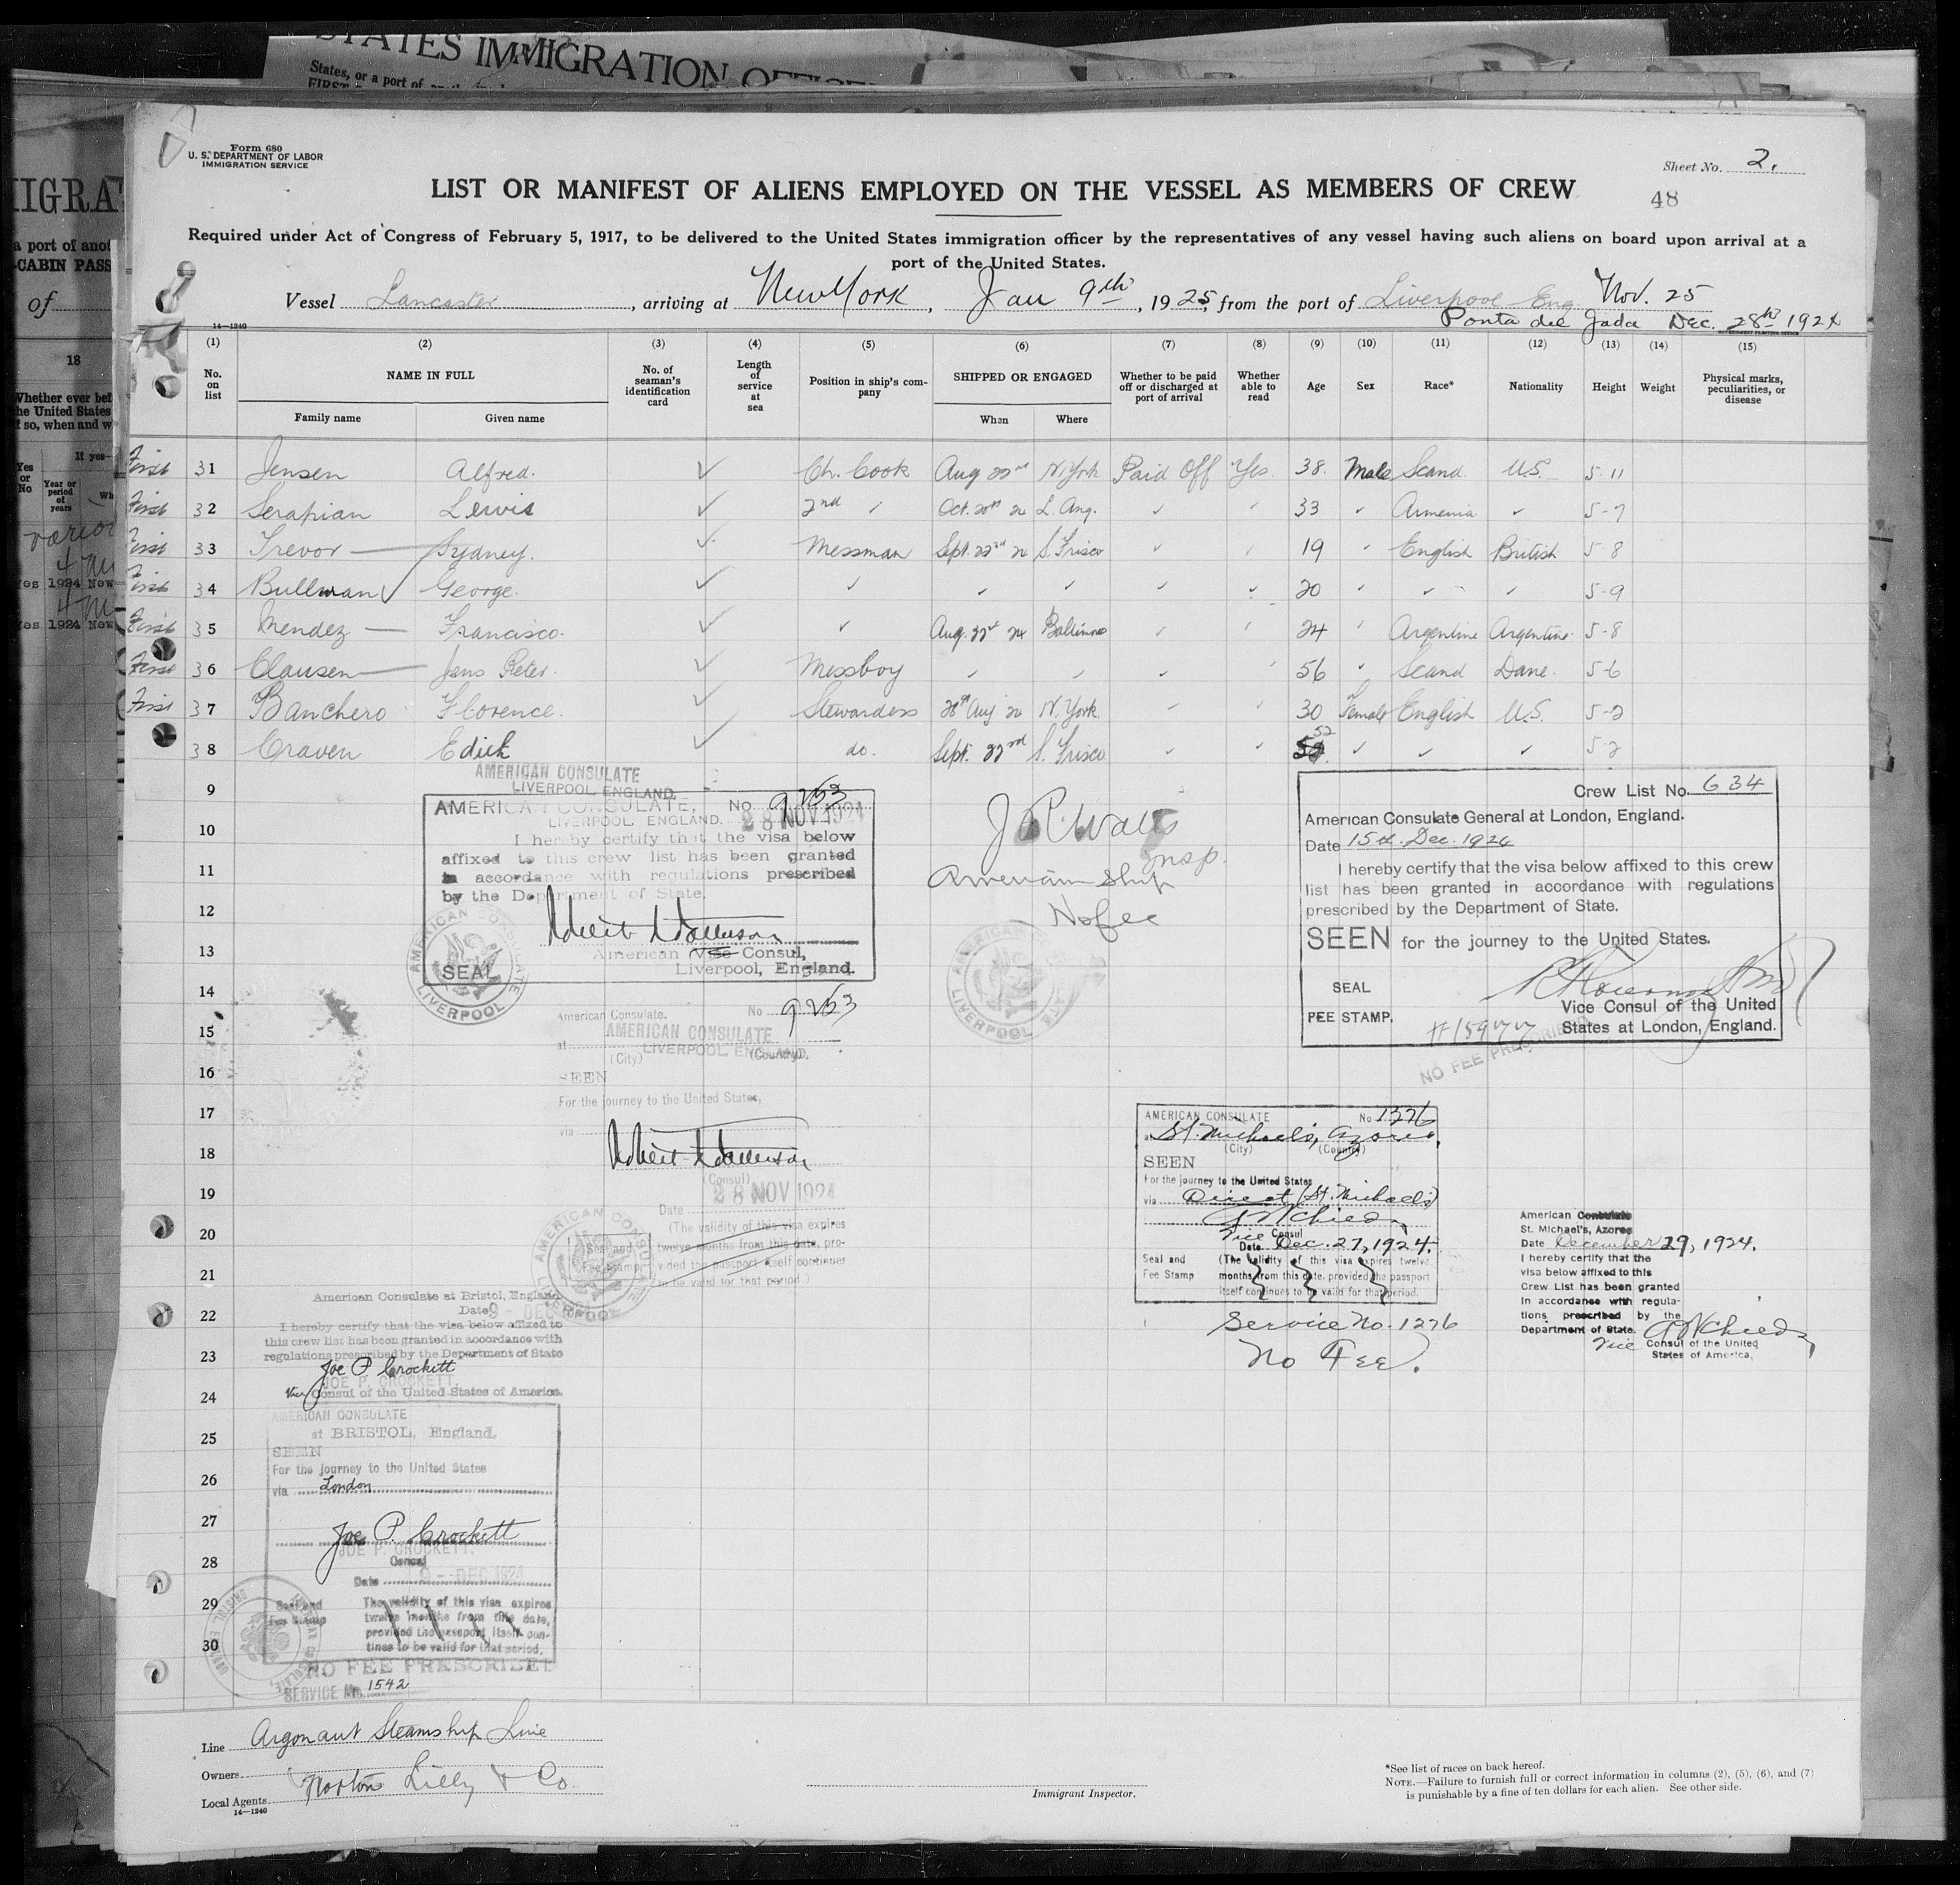 STATES IMMIGRATION
States, or a port of
Form 680
U. S. DEPARTMENT OF LABOR
IMMIGRATION SERVICE
Sheet No. 2.
LIST OR MANIFEST OF ALIENS EMPLOYED ON THE VESSEL AS MEMBERS OF CREW
48
Required under Act of Congress of February 5, 1917, to be delivered to the United States immigration officer by the representatives of any vessel having such aliens on board upon arrival at a
port of the United States.
Vessel Lancaster, arriving at New York, Jan 9th, 1925, from the port of Liverpool Eng. Nov. 25
Ponta del Gada Dec. 28th 1924
14-1240
(1) (2) (3) (4) (5) (6) (7) (8) (9) (10) (11) (12) (13) (14) (15)
No. on list NAME IN FULL No. of seaman's identification card Length of service at sea Position in ship's company SHIPPED OR ENGAGED Whether to be paid off or discharged at port of arrival Whether able to read Age Sex Race* Nationality Height Weight Physical marks, peculiarities, or disease
Family name Given name When Where
First 31 Jensen Alfred. ✓ Ch. Cook Aug 22nd N. York Paid Off Yes. 38. Male Scand. U.S. 5-11
First 32 Serapian Lewis ✓ 2nd Oct. 20th 24 L. Ang. ✓ 33 ✓ Armenia ✓ 5-7
First 33 Trevor Sydney. ✓ Messman Sept. 22nd 24 S. Frisco ✓ 19 ✓ English British 5-8
First 34 Bullman George. ✓ ✓ ✓ ✓ ✓ ✓ 20 ✓ ✓ ✓ 5-9
First 35 Mendez Francisco. ✓ ✓ Aug. 22nd 24 Baltimore ✓ 24 Argentine Argentine 5-8
First 36 Clausen Jens Peter. ✓ Messboy ✓ ✓ ✓ 56 ✓ Scand Dane. 5-6
First 37 Banchero Florence. ✓ Stewardess 28th Aug 24 N. York. 30 Female English U.S. 5-2
38 Craven Edith ✓ do. Sept. 22nd S. Frisco ✓ ✓ 52 ✓ ✓ ✓ 5-2
9
10
11
12
13
14
15
16
17
18
19
20
21
22
23
24
25
26
27
28
29
30
AMERICAN CONSULATE
LIVERPOOL, ENGLAND.
AMERICAN CONSULATE, No. 9263
LIVERPOOL, ENGLAND. 28 NOV 1924
I hereby certify that the visa below
affixed to this crew list has been granted
in accordance with regulations prescribed
by the Department of State.
American Vice Consul,
Liverpool, England.
SEAL
AMERICAN CONSULATE LIVERPOOL
J. P. Watts
Insp.
American Ship
No fee
Crew List No. 634
American Consulate General at London, England.
Date 15th. Dec. 1924
I hereby certify that the visa below affixed to this crew
list has been granted in accordance with regulations
prescribed by the Department of State.
SEEN for the journey to the United States.
SEAL
Vice Consul of the United
FEE STAMP.
States at London, England.
NO FEE PRESCRIBED
American Consulate. No 9263
at AMERICAN CONSULATE
LIVERPOOL ENGLAND.
(City) (Country)
SEEN
For the journey to the United States,
via
(Consul)
28 NOV 1924
Date
(The validity of this visa expires
twelve months from this date, pro-
vided the passport itself continues
to be valid for that period.)
Seal and
Fee Stamp
AMERICAN CONSULATE LIVERPOOL
AMERICAN CONSULATE No 1276
at St. Michael's, Azores.
(City) (Country)
SEEN
For the journey to the United States
via Direct (St. Michaels)
Vice Consul
Date Dec. 27, 1924.
Seal and
Fee Stamp
(The validity of this visa expires twelve
months from this date, provided the passport
itself continues to be valid for that period.
Service No. 1276
No Fee.
American Consulate
St. Michael's, Azores
Date December 29, 1924.
I hereby certify that the
visa below affixed to this
Crew List has been granted
in accordance with regula-
tions prescribed by the
Department of State.
Vice Consul of the United
States of America,
American Consulate at Bristol, England
Date 9 - DEC
I hereby certify that the visa below affixed to
this crew list has been granted in accordance with
regulations prescribed by the Department of State
Joe P. Crockett
JOE P. CROCKETT.
Vice Consul of the United States of America.
AMERICAN CONSULATE
at BRISTOL, England.
SEEN
For the journey to the United States
via London
Joe P. Crockett
JOE P. CROCKETT.
Consul
Date 9 - DEC 1924
Seal and
Fee Stamp
The validity of this visa expires
twelve months from this date,
provided the passport itself con-
tinues to be valid for that period.
NO FEE PRESCRIBED
SERVICE No. 1542
Line Argonaut Steamship Line
Owners
Local Agents Norton Lilly & Co.
14-1240
Immigrant Inspector.
*See list of races on back hereof.
NOTE.—Failure to furnish full or correct information in columns (2), (5), (6), and (7)
is punishable by a fine of ten dollars for each alien. See other side.